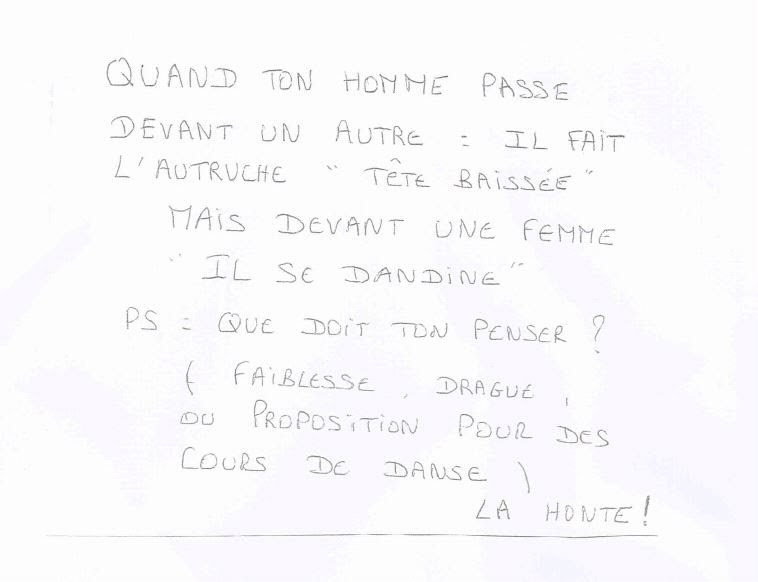 QUAND TON HOMME PASSE
DEVANT UN AUTRE : IL FAIT
L'AUTRUCHE " TÊTE BAISSÉE "
MAIS DEVANT UNE FEMME
" IL SE DANDINE "
PS : QUE DOIT TON PENSER ?
( FAIBLESSE , DRAGUE ,
OU PROPOSITION POUR DES
COURS DE DANSE )
LA HONTE !